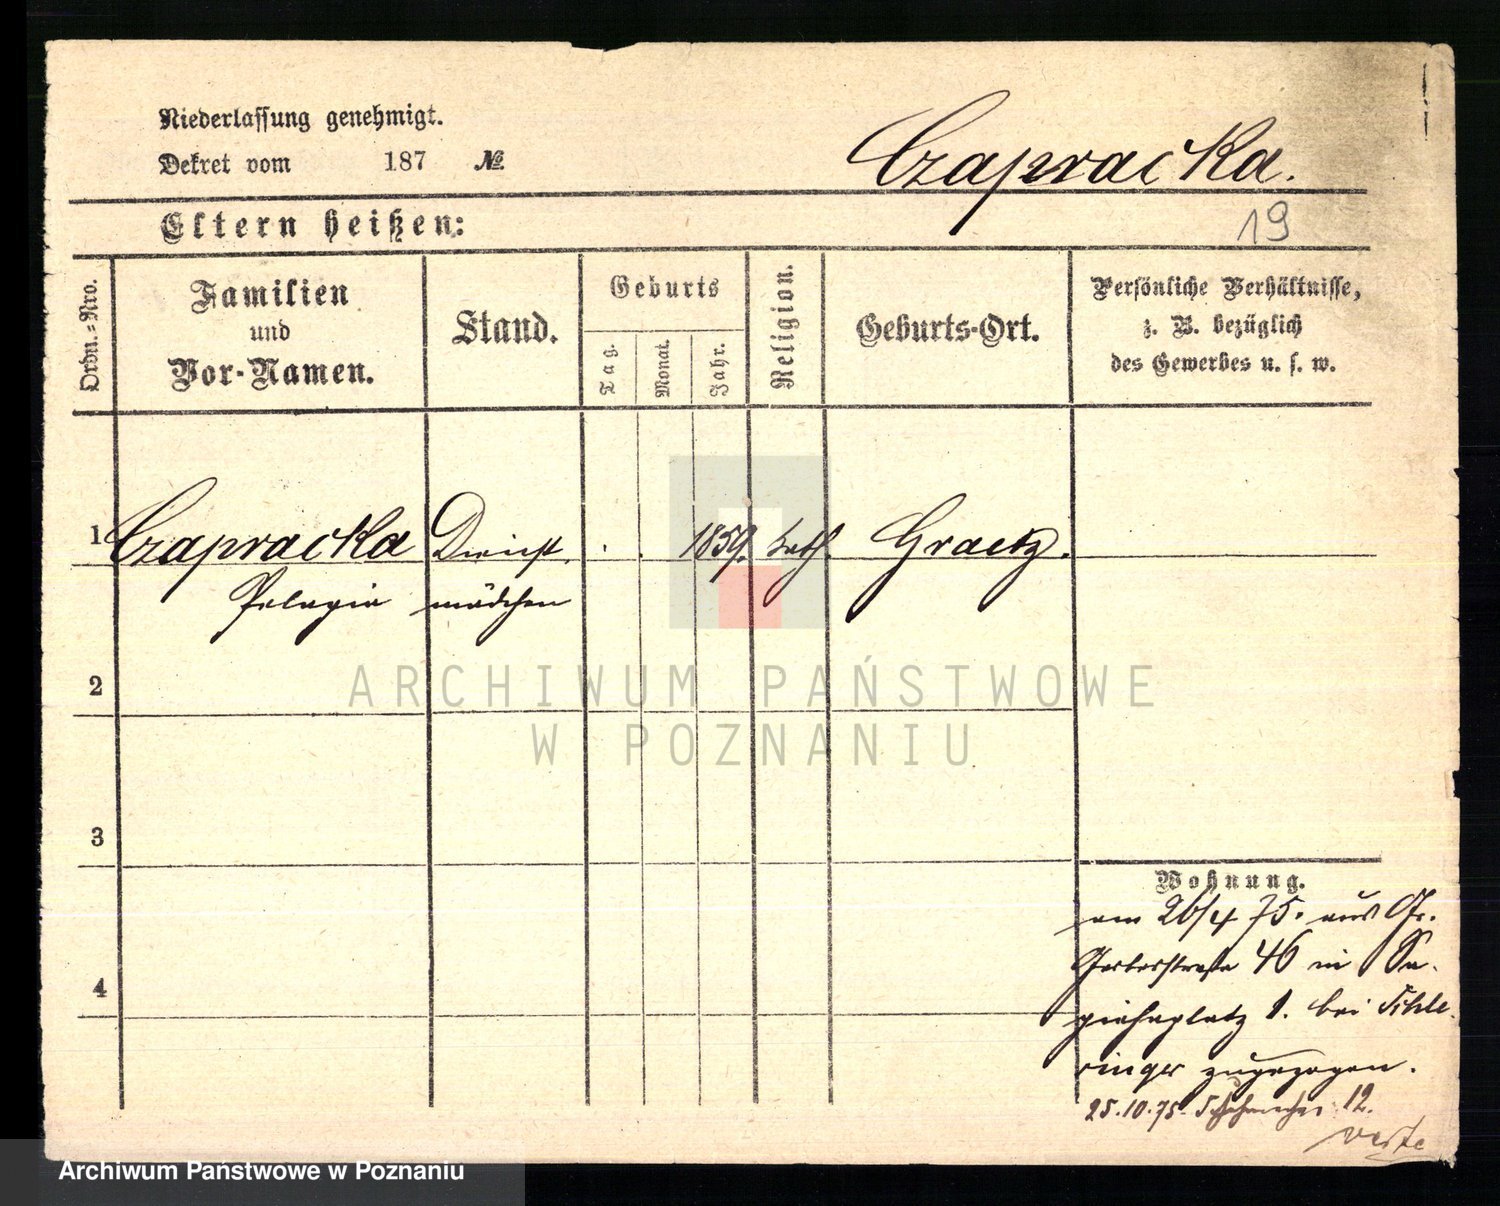 Niederlassung genehmigt.
Dekret vom 187 №
Czapracka.
19
Eltern heißen:
Ordn.=Nro.
Familien
und
Vor-Namen.
Stand.
Geburts
Tag.
Monat.
Jahr.
Religion.
Geburts-Ort.
Persönliche Verhältnisse,
z. B. bezüglich
des Gewerbes u. s. w.
1 Czapracka Dienst 1859. kath. Graetz.
Pelagia mädchen
ARCHIWUM PAŃSTWOWE
W POZNANIU
2
3
4
Wohnung.
am 26/4 75. aus Gr.
Gerberstraße 46 in Sa-
piehaplatz 1. bei Schle
singer zugezogen.
25.10.75. 12.
Archiwum Państwowe w Poznaniu